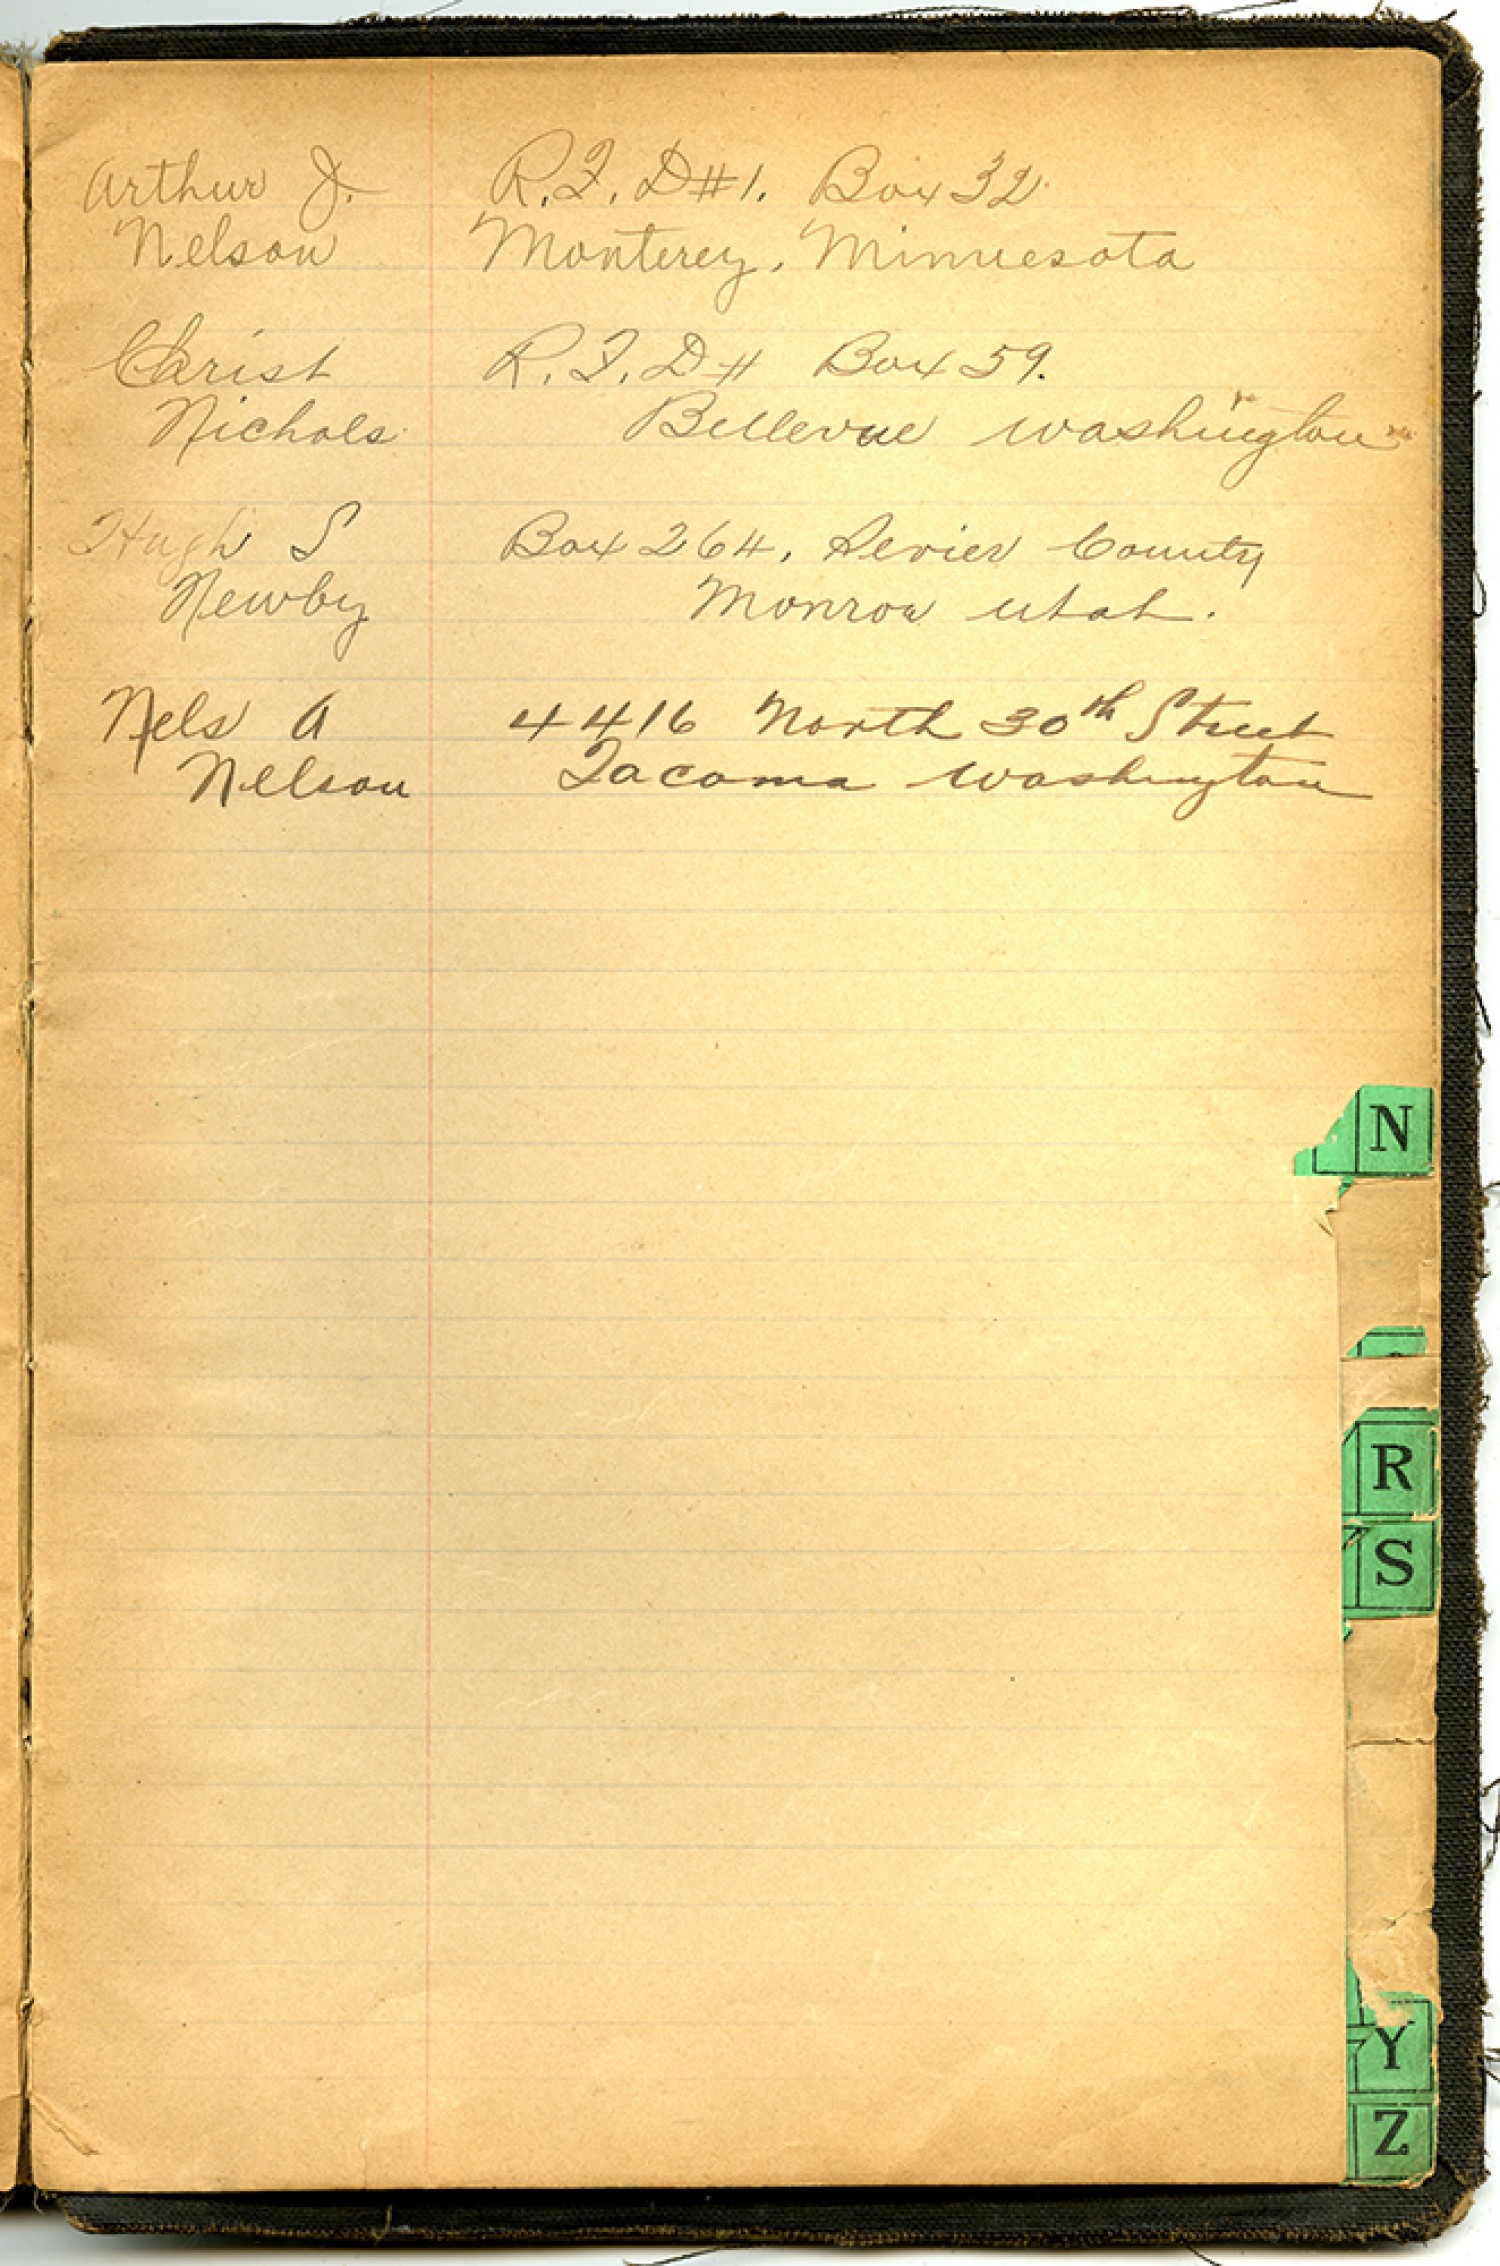 Arthur J. R.F.D#1. Box 32
Nelson Monterey, Minnesota
Christ R.F.D# Box 59.
Nichols Bellevue Washington
Hugh S Box 264, Sevier County
Newby Monroe Utah.
Nels A 4416 North 30th Street
Nelson Tacoma Washington
N
R
S
Y
Z